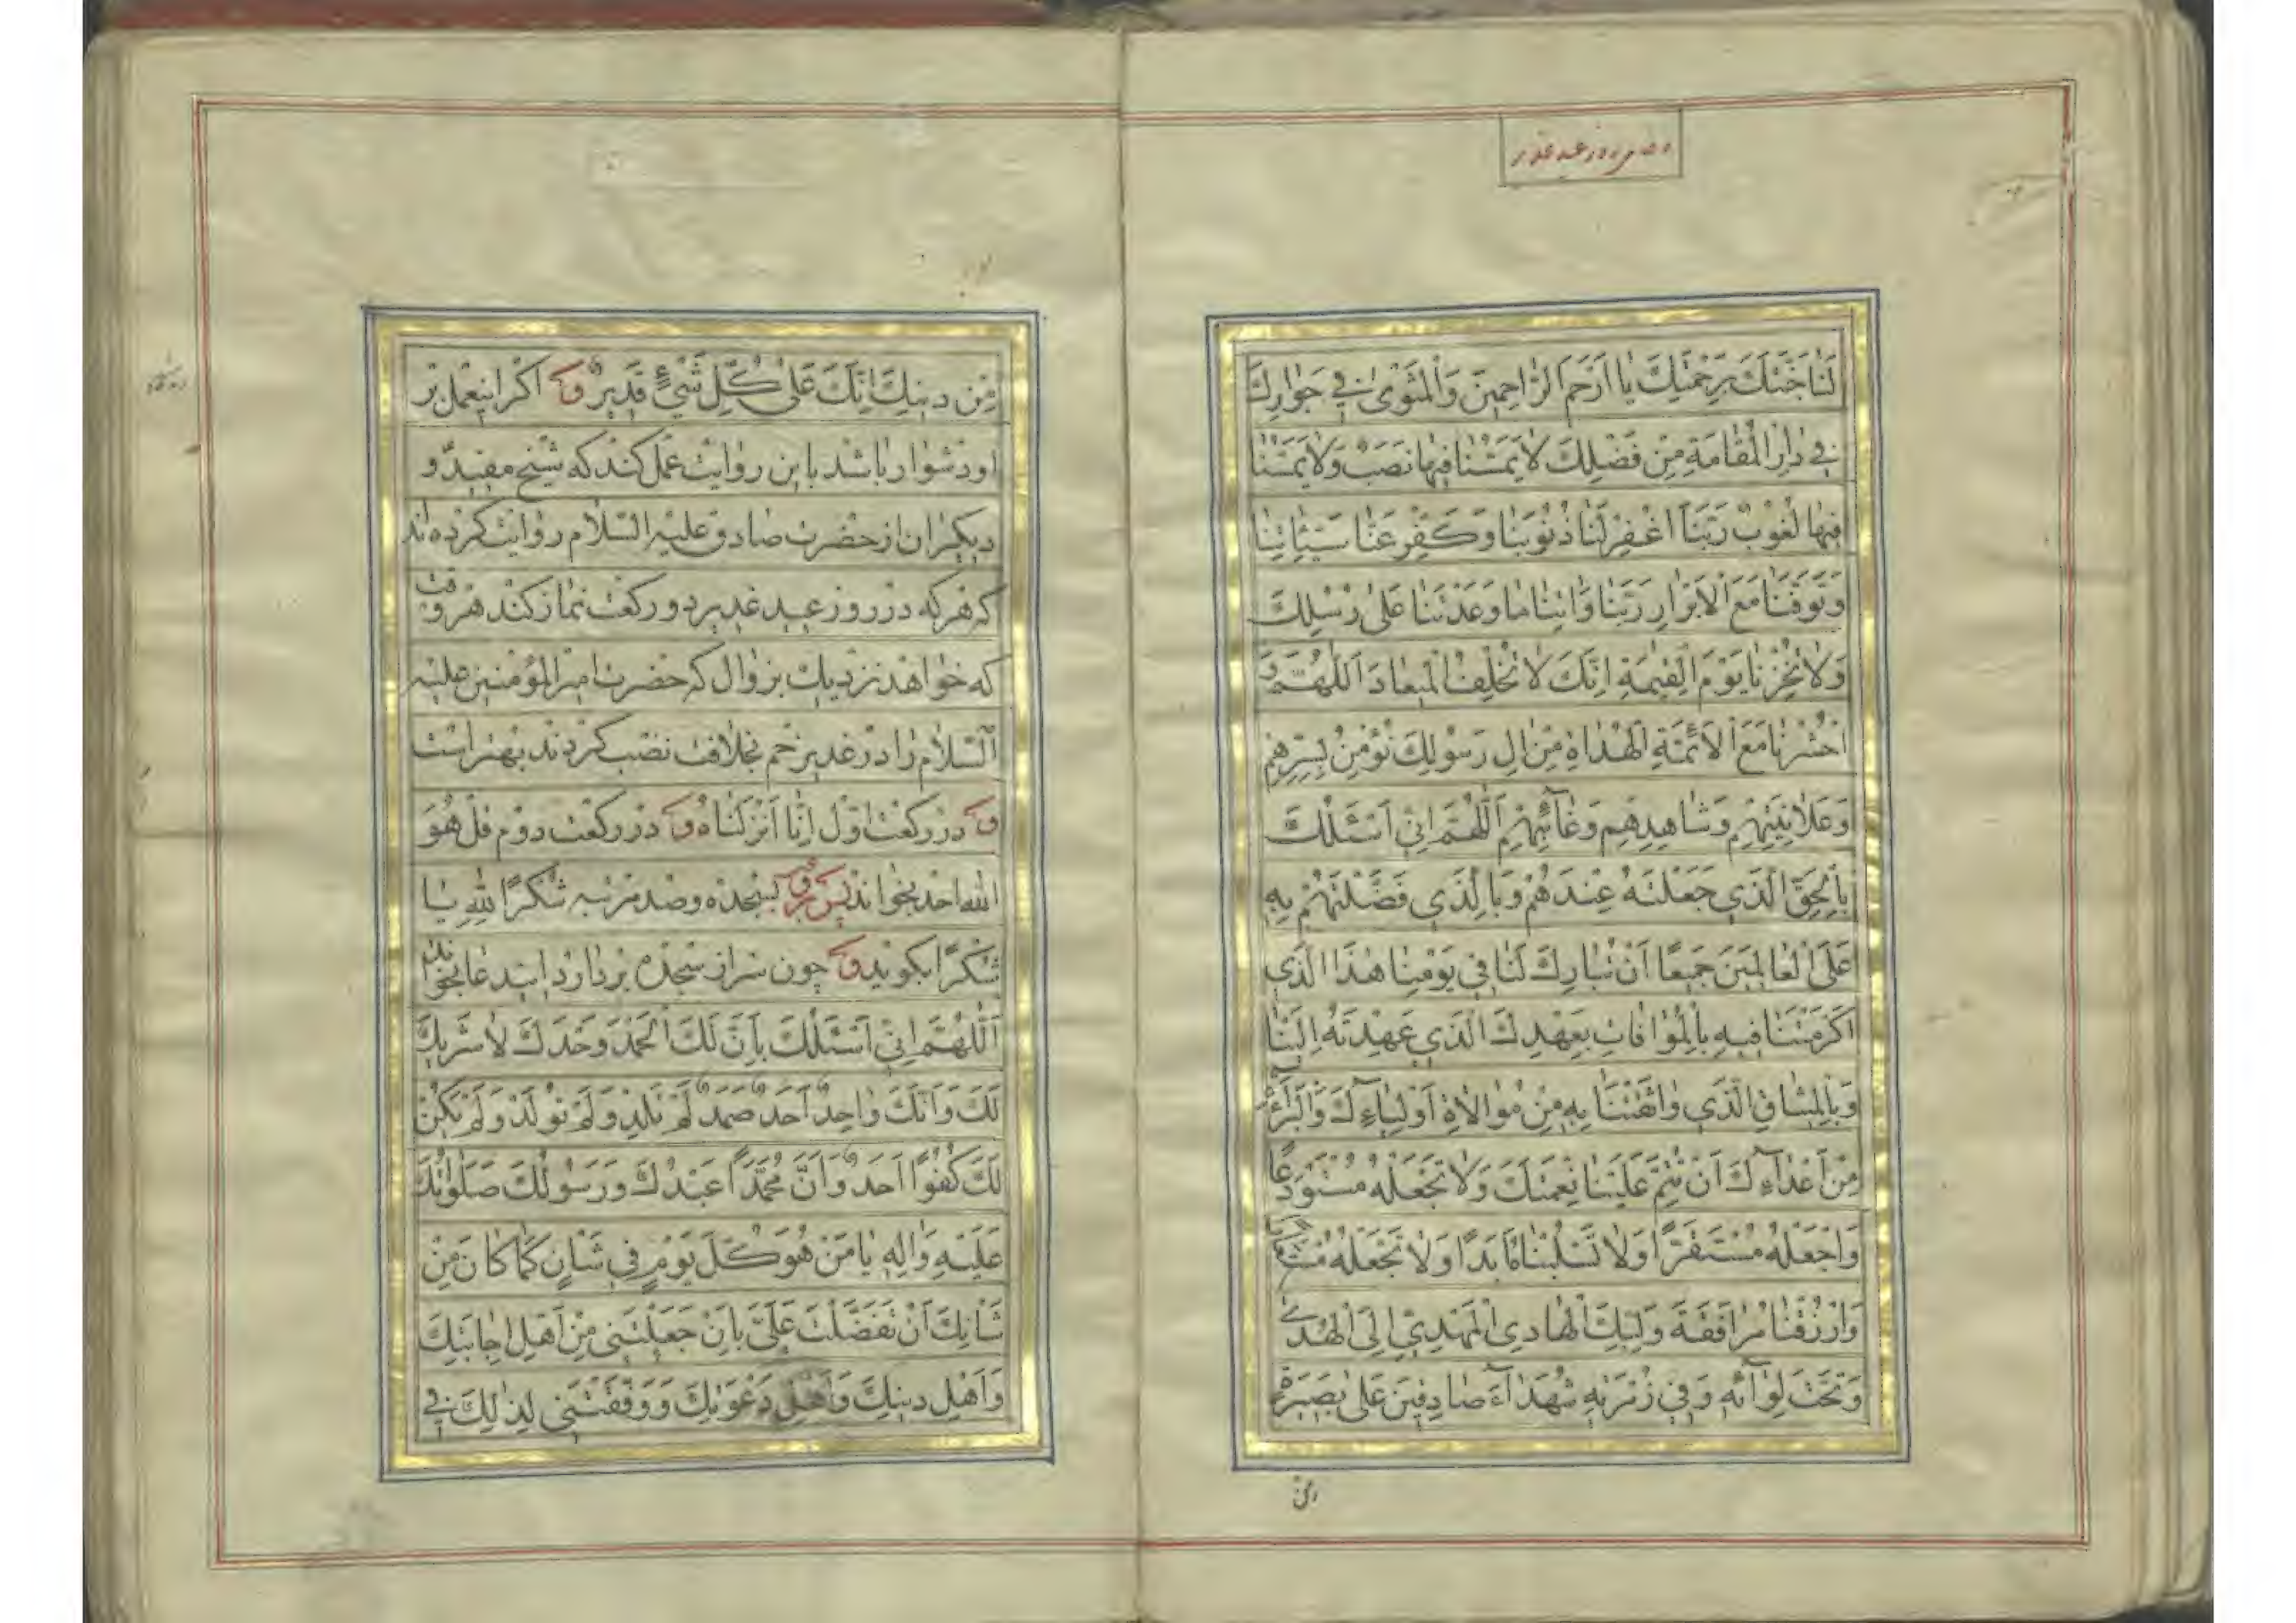 روز عید غدیر
لَنَا جَنَّتَكَ بِرَحْمَتِكَ يَا اَرْحَمَ الرَّاحِمِينَ وَالْمَثْوىٰ فِي جَوَارِكَ
فِي دَارِ الْمُقَامَةِ مِنْ فَضْلِكَ لَا يَمَسُّنَا فِيهَا نَصَبٌ وَلَا يَمَسُّنَا
فِيهَا لُغُوبٌ رَبَّنَا اغْفِرْ لَنَا ذُنُوبَنَا وَكَفِّرْ عَنَّا سَيِّئَاتِنَا
وَتَوَفَّنَا مَعَ الْاَبْرَارِ رَبَّنَا وَاٰتِنَا مَا وَعَدْتَنَا عَلىٰ رُسُلِكَ
وَلَا تُخْزِنَا يَوْمَ الْقِيٰمَةِ اِنَّكَ لَا تُخْلِفُ الْمِيعَادَ اَللّٰهُمَّ وَ
احْشُرْنَا مَعَ الْاَئِمَّةِ الْهُدَاةِ مِنْ اٰلِ رَسُولِكَ نُؤْمِنُ بِسِرِّهِمْ
وَعَلَانِيَتِهِمْ وَشَاهِدِهِمْ وَغَآئِبِهِمْ اَللّٰهُمَّ اِنِّي اَسْئَلُكَ
بِالْحَقِّ الَّذِي جَعَلْتَهُ عِنْدَهُمْ وَبِالَّذِي فَضَّلْتَهُمْ بِهِ
عَلَى الْعَالَمِينَ جَمِيعًا اَنْ تُبَارِكَ لَنَا فِي يَوْمِنَا هٰذَا الَّذِي
اَكْرَمْتَنَا فِيهِ بِالْمُوَافَاتِ بِعَهْدِكَ الَّذِي عَهِدْتَهُ اِلَيْنَا
وَبِالْمِيثَاقِ الَّذِي وَاثَقْتَنَا بِهِ مِنْ مُوَالَاةِ اَوْلِيَآءِكَ وَالْبَرَآئَةِ
مِنْ اَعْدَآءِكَ اَنْ تُتِمَّ عَلَيْنَا نِعْمَتَكَ وَلَا تَجْعَلْهُ مُسْتَوْدَعًا
وَاجْعَلْهُ مُسْتَقَرًّا وَلَا تَسْلُبْنَاهُ اَبَدًا وَلَا تَجْعَلْهُ
وَارْزُقْنَا مُرَافَقَةَ وَلِيِّكَ الْهَادِي الْمَهْدِيِّ اِلَى الْهُدىٰ
وَتَحْتَ لِوَآئِهِ وَفِي زُمْرَتِهِ شُهَدَآءَ صَادِقِينَ عَلىٰ بَصِيرَةٍ
مِنْ دِينِكَ اِنَّكَ عَلىٰ كُلِّ شَيْءٍ قَدِيرٌ و اکر اینعمل بر
او دشوار باشد باین روایت عمل کند که شیخ مفید و
دیکران از حضرت صادق علیه السلام روایت کرده‌اند
که هر که در روز عید غدیر دو رکعت نماز کند هر وقت
که خواهد نزدیک بزوال که حضرت امیر المؤمنین علیه
السلام را در غدیر خم بخلافت نصب کردند بهتر است
و در رکعت اول اِنّا اَنْزَلْنَاهُ و در رکعت دوم قُلْ هُوَ
الله احد بخواند پس بسجده و صد مرتبه شُكْرًا لِلّٰهِ یا
شُكْرًا بکوید و چون سر از سجده بردارد ایندعا بخواند
اَللّٰهُمَّ اِنِّي اَسْئَلُكَ بِاَنَّ لَكَ الْحَمْدَ وَحْدَكَ لَا شَرِيكَ
لَكَ وَاَنَّكَ وَاحِدٌ اَحَدٌ صَمَدٌ لَمْ تَلِدْ وَلَمْ تُولَدْ وَلَمْ يَكُنْ
لَكَ كُفُوًا اَحَدٌ وَاَنَّ مُحَمَّدًا عَبْدُكَ وَرَسُولُكَ صَلَوَاتُكَ
عَلَيْهِ وَاٰلِهِ يَا مَنْ هُوَ كُلَّ يَوْمٍ فِي شَاْنٍ كَمَا كَانَ مِنْ
شَاْنِكَ اَنْ تَفَضَّلْتَ عَلَيَّ بِاَنْ جَعَلْتَنِي مِنْ اَهْلِ اِجَابَتِكَ
وَاَهْلِ دِينِكَ وَاَهْلِ دَعْوَتِكَ وَوَفَّقْتَنِي لِذٰلِكَ فِي